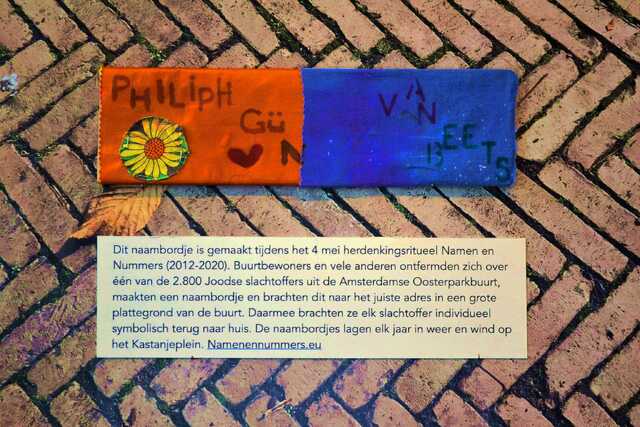 PHILIPH
GÜ N
VAN
BEETS
Dit naambordje is gemaakt tijdens het 4 mei herdenkingsritueel Namen en
Nummers (2012-2020). Buurtbewoners en vele anderen ontfermden zich over
één van de 2.800 Joodse slachtoffers uit de Amsterdamse Oosterparkbuurt,
maakten een naambordje en brachten dit naar het juiste adres in een grote
plattegrond van de buurt. Daarmee brachten ze elk slachtoffer individueel
symbolisch terug naar huis. De naambordjes lagen elk jaar in weer en wind op
het Kastanjeplein. Namenennummers.eu